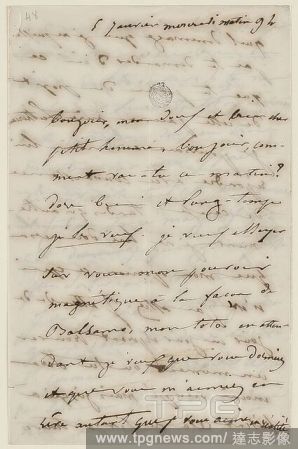 5 janvier mercredi matin 9h
bonjour, mon Juif et
petit homme, bonjour, com-
ment vas-tu ce matin?
dors bien et long-temps
je le veux je veux essayer
sur vous mon pouvoir
magnétique à la façon de
Balsamo, mon toto en atten-
dant je veux que vous dormiez
et que vous m'aimiez en
rêve autant que vous
TPG
www.tpgnews.com / 達志影像